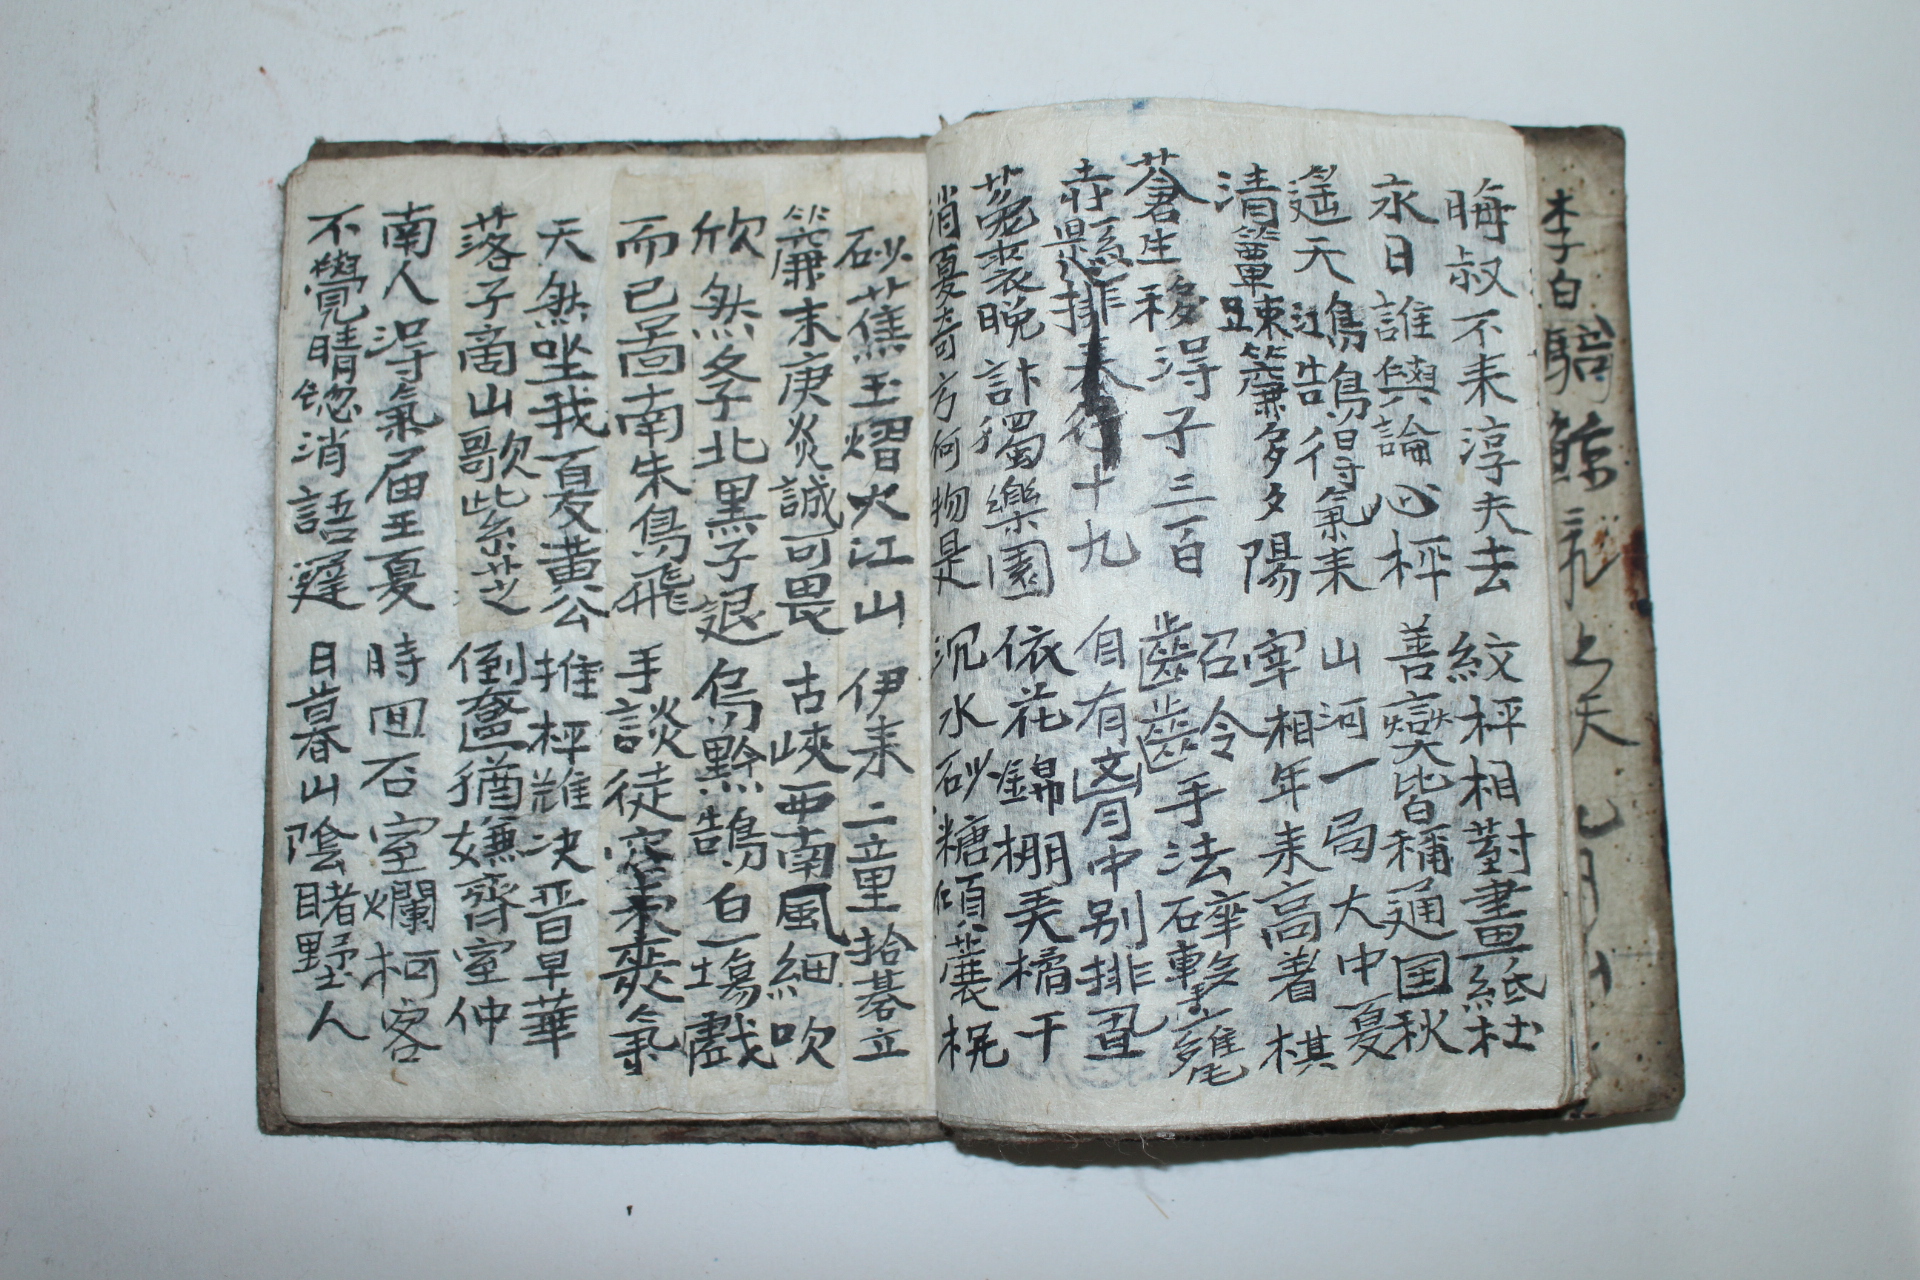 李白騎鯨飛上天
晦叔不来淳夫去 紋枰相對畫紙杜
永日誰與論心枰 善奕皆稱通国秋
遥天鴻鵠得氣来 山河一局大中夏
清簟疎簾多夕陽 宰相年来高着棋
蒼生移淂子三百 召令
壮縣排恭行十九 自有胷中别排
菟裘晩計獨樂園 依花錦棚美橘干
消夏奇方何物是 沉水砂糖
砂蕉玉熠火江山 伊来二童拾碁立
簾末庚炎誠可畏 古峽西南風細吹
欣然冬子北黒子退 烏黔鵠白一塲戲
而已啚南朱鳥飛 手談徒容来爽氣
天然坐我夏黄公 推枰雖决晋早華
落子商山歌紫芝 倒奩猶嫌齊室仲
南人淂氣届王夏 時回石室爛柯客
不覺晴窓消語遲 日暮山陰賭野人